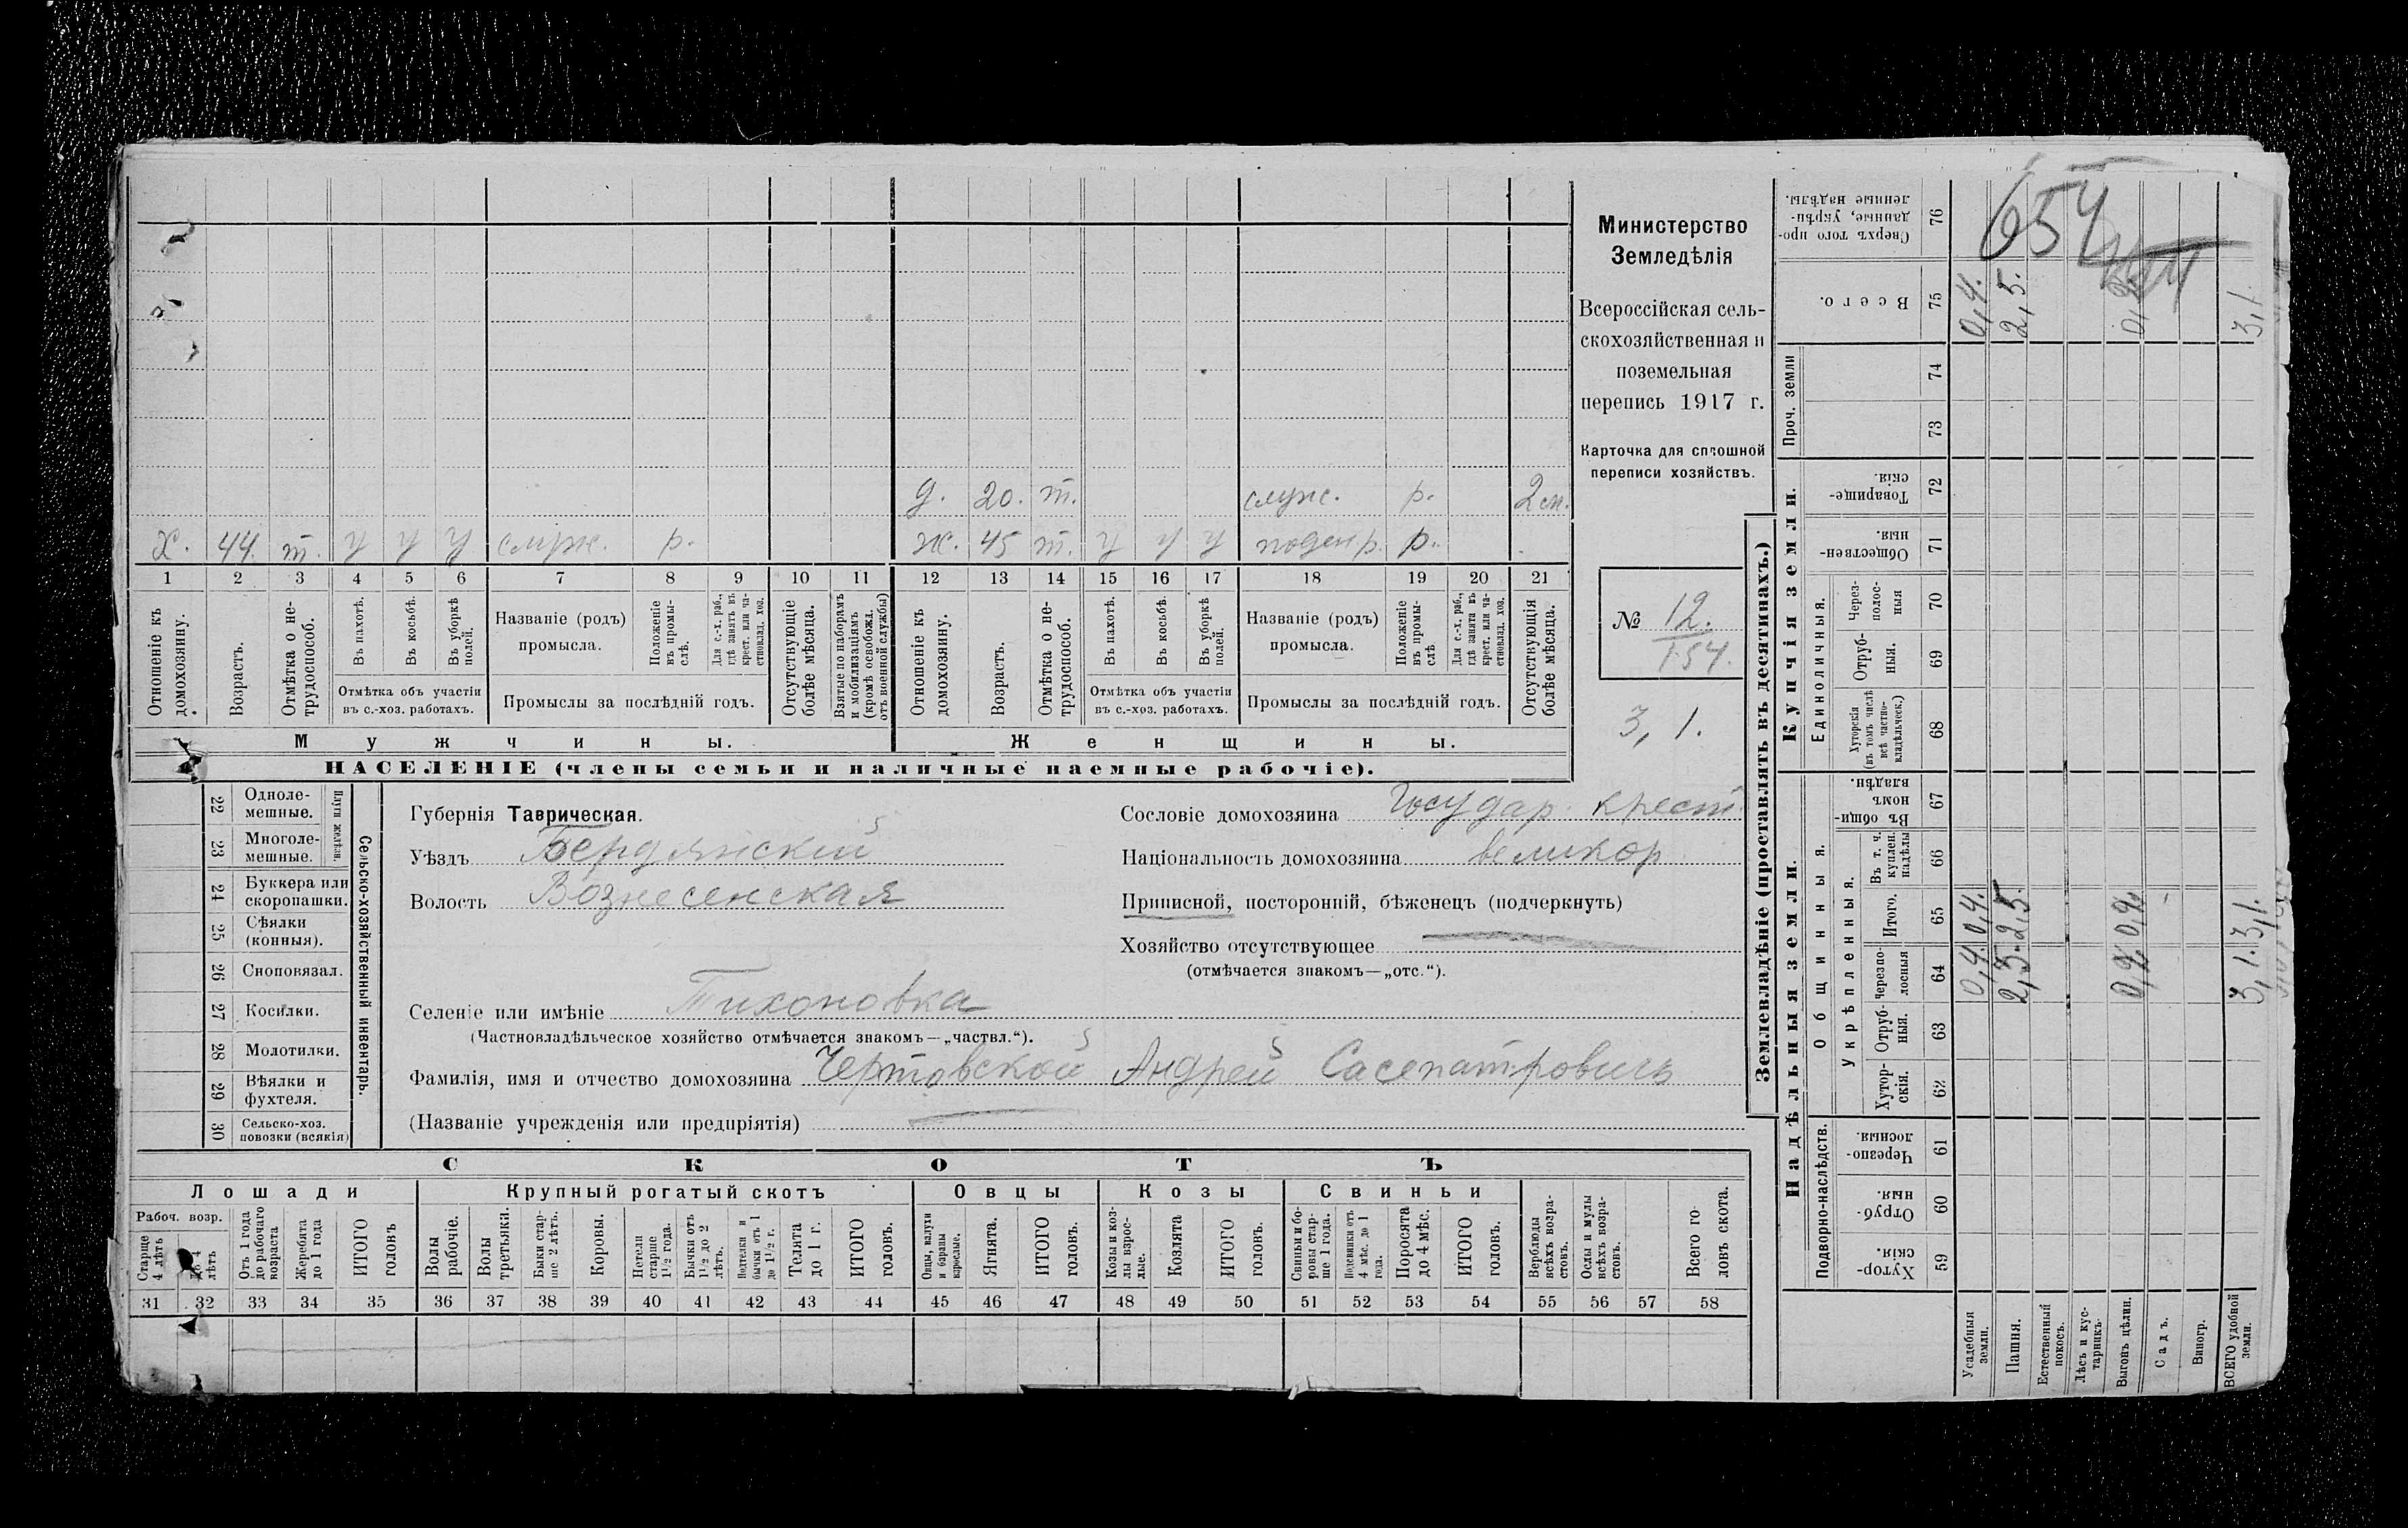 Х. 44. т. у у у служ. р.
д. 20. т. служ. р. 2 м.
ж. 45 т. у у у поденр. р.
1 2 3 4 5 6 7 8 9 10 11 12 13 14 15 16 17 18 19 20 21
Отношеніе къ домохозяину.
Возрастъ.
Отмѣтка о не-
трудоспособ.
Въ пахотѣ.
Въ косьбѣ.
Въ уборкѣ
полей.
Отмѣтка объ участіи
въ с.-хоз. работахъ.
Названіе (родъ)
промысла.
Положеніе
въ промы-
слѣ.
Для с.-х. раб.,
гдѣ занятъ въ
крест. или ча-
стновлад. хоз.
Промыслы за послѣдній годъ.
Отсутствующіе
болѣе мѣсяца.
Взятые по наборамъ
и мобилизаціямъ
(кромѣ освобожд.
отъ военной службы)
Отношеніе къ
домохозяину.
Возрастъ.
Отмѣтка о не-
трудоспособ.
Въ пахотѣ.
Въ косьбѣ.
Въ уборкѣ
полей.
Отмѣтка объ участіи
въ с.-хоз. работахъ.
Названіе (родъ)
промысла.
Положеніе
въ промы-
слѣ
Для с.-х. раб.,
гдѣ занята въ
крест. или ча-
стновлад. хоз.
Промыслы за послѣдній годъ.
Отсутствующія
болѣе мѣсяца.
Мужчины.
Женщины.
НАСЕЛЕНІЕ (члены семьи и наличные наемные рабочіе).
Министерство
Земледѣлія
Всероссійская сель-
скохозяйственная и
поземельная
перепись 1917 г.
Карточка для сплошной
переписи хозяйствъ.
№ 12.
154.
3,1.
22 Одноле-
мешные.
23 Многоле-
мешные.
Плуги желѣзн.
24 Буккера или
скоропашки.
25 Сѣялки
(конныя).
26 Сноповязал.
27 Косилки.
28 Молотилки.
29 Вѣялки и
фухтеля.
30 Сельско-хоз.
повозки (всякія)
Сельско-хозяйственный инвентарь.
Губернія Таврическая.
Уѣздъ Бердянскій
Волость Вознесенская
Сословіе домохозяина Государ. крест.
Національность домохозяина великор
Приписной, посторонній, бѣженецъ (подчеркнуть)
Хозяйство отсутствующее
(отмѣчается знакомъ—„отс.“).
Селеніе или имѣніе Тихоновка
(Частновладѣльческое хозяйство отмѣчается знакомъ—„частвл.“).
Фамилія, имя и отчество домохозяина Чертовской Андрей Сасепатровичъ
(Названіе учрежденія или предпріятія)
СКОТЪ
Лошади
Крупный рогатый скотъ
Овцы
Козы
Свиньи
Рабоч. возр.
Старше
4 лѣтъ
До 4
лѣтъ
Отъ 1 года
до рабочаго
возраста
Жеребята
до 1 года
ИТОГО
головъ
Волы
рабочіе.
Волы
третьяки.
Быки стар-
ше 2 лѣтъ.
Коровы.
Нетели
старше
1½ года.
Бычки отъ
1½ до 2
лѣтъ.
Подтелки и
бычки отъ 1
до 1½ г.
Телята
до 1 г.
ИТОГО
головъ.
Овцы, валухи
и бараны
взрослые.
Ягнята.
ИТОГО
головъ.
Козы и коз-
лы взрос-
лые.
Козлята
ИТОГО
головъ.
Свиньи и бо-
ровы стар-
ше 1 года.
Подсвинки отъ
4 мѣс. до 1
года.
Поросята
до 4 мѣс.
ИТОГО
головъ.
Верблюды
всѣхъ возра-
стовъ.
Ослы и мулы
всѣхъ возра-
стовъ.
Всего го-
ловъ скота.
31 32 33 34 35 36 37 38 39 40 41 42 43 44 45 46 47 48 49 50 51 52 53 54 55 56 57 58
Землевладѣніе (проставлять въ десятинахъ.)
Надѣльныя земли.
Купчія земли.
Проч. земли
Подворно-наслѣдств.
Общинныя.
Укрѣпленныя.
Единоличныя.
Хутор-
скія. 59
Отруб-
ныя. 60
Черезпо-
лосныя. 61
Хутор-
скія. 62
Отруб-
ныя. 63
Черезпо-
лосныя 64
Итого. 65
Въ т. ч.
куплен.
надѣлы 66
Въ общи-
номъ
владѣн. 67
Хуторскія
(въ томъ числѣ
всѣ частно-
владѣльческ.) 68
Отруб-
ныя. 69
Через-
полос-
ныя 70
Обществен-
ныя. 71
Товарище-
скія. 72
73
74
Всего. 75
Сверхъ того про-
данные, укрѣп-
ленные надѣлы. 76
Усадебныя
земли. 0,4. 0,4. 0,4.
Пашня. 2,5. 2,5. 2,5.
Естественный
покосъ.
Лѣсъ и кус-
тарникъ.
Выгонъ цѣлин.
Садъ.
Виногр.
ВСЕГО удобной
земли. 3,1. 3,1. 3,1.
654